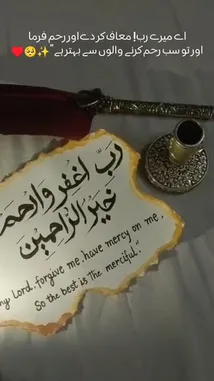 اے میرے رب! معاف کر دے اور رحم فرما
اور تو سب رحم کرنے والوں سے بہتر ہے"✨🥺♥️
رَبِّ اغْفِرْ وَارْحَمْ
خَيْرُ الرَّاحِمِينَ
my Lord, forgive me, have mercy on me,
So the best is The merciful."